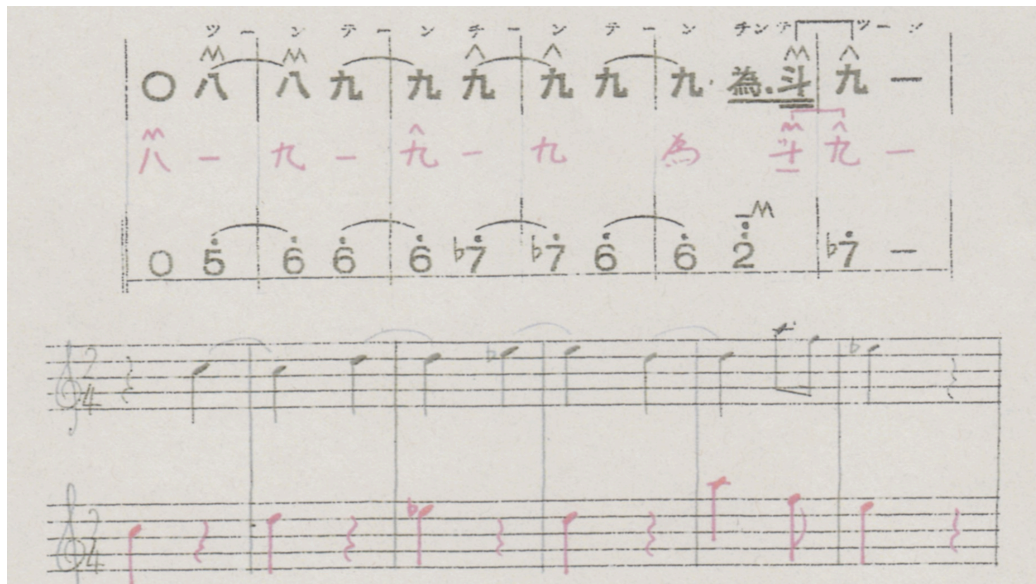 ツーンテーンチーンテーンチンテツーン
○八八九九九九九九為斗九ー
八ー九ー九ー九為斗九ー
0 5 6 6 6 ♭7 ♭7 6 6 2 ♭7 ー
2/4
2/4